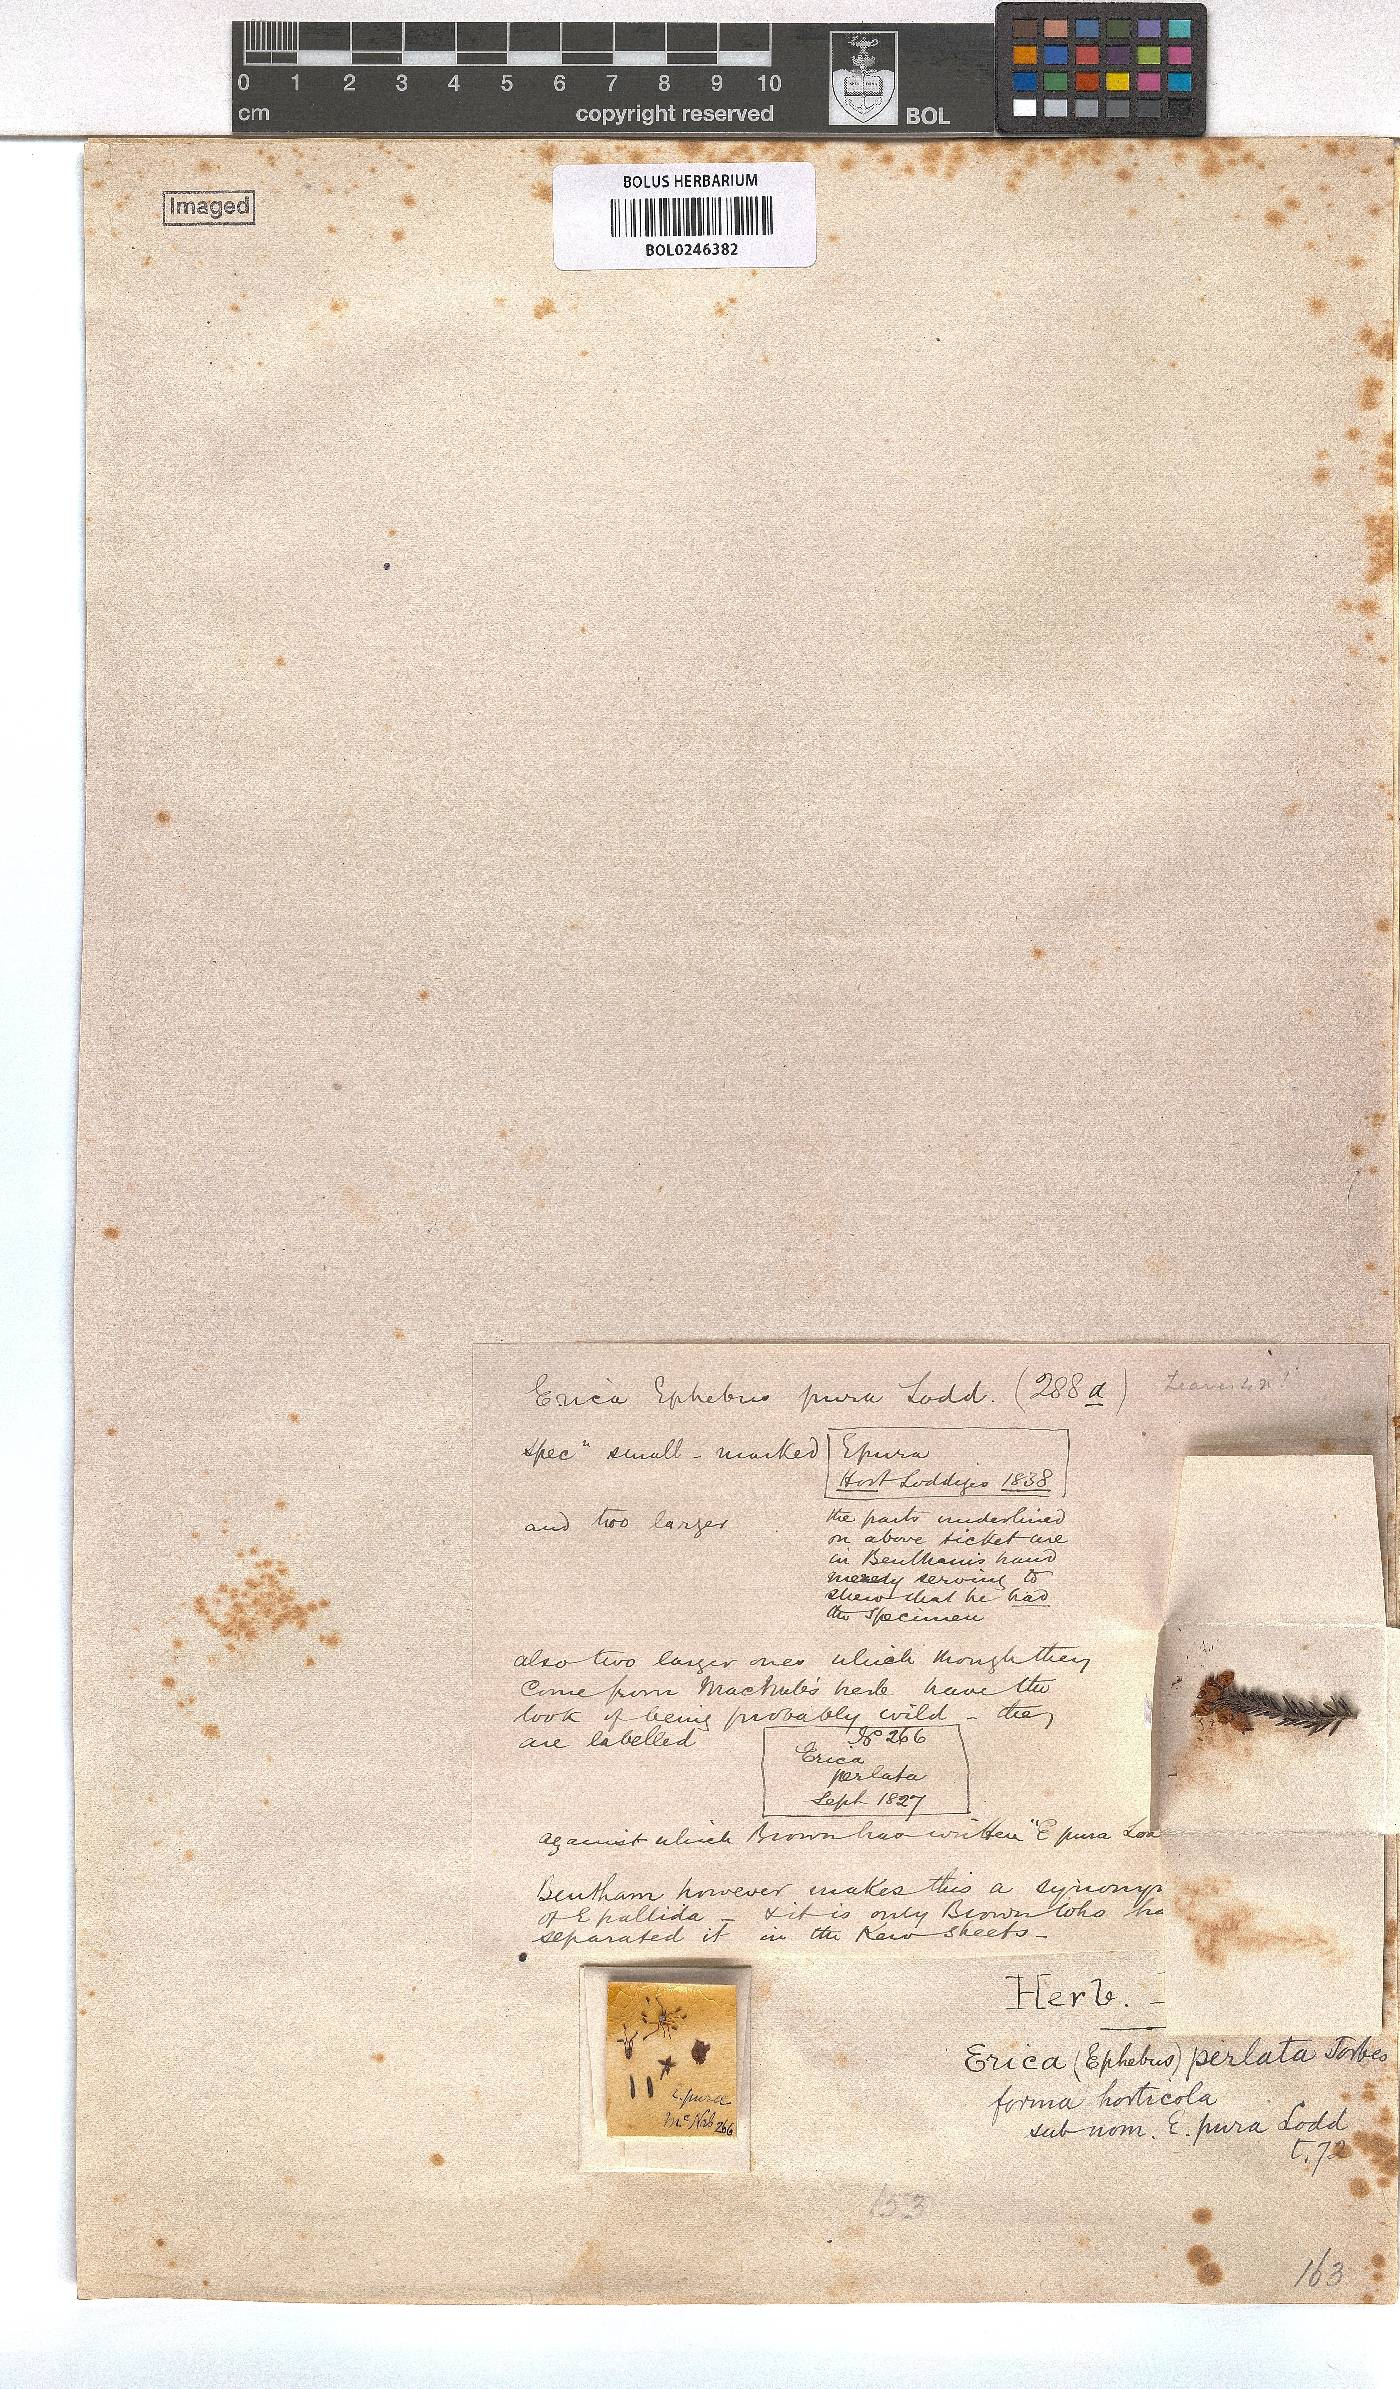 0 1 2 3 4 5 6 7 8 9 10
cm copyright reserved BOL
Imaged
BOLUS HERBARIUM
BOL0246382
Erica Ephebus pura Lodd. (288 a)
specn small - marked
E pura
Hort Loddiges 1838
and two larger
the parts underlined
on above ticket are
in Bentham's hand
merely serving to
shew that he had
the specimen
also two larger ones which though they
come from MacNab's herb have the
look of being probably wild - they
are labelled
No 266
Erica
perlata
Sept 1827
against which Brown has written "E pura Lod
Bentham however makes this a synonym
of E pallida - & it is only Brown who ha
separated it in the Kew sheets -
Herb. -
Erica (Ephebus) perlata Forbes
forma horticola
sub nom. E. pura Lodd
t. 72
E. pura
McNab 266
153
163